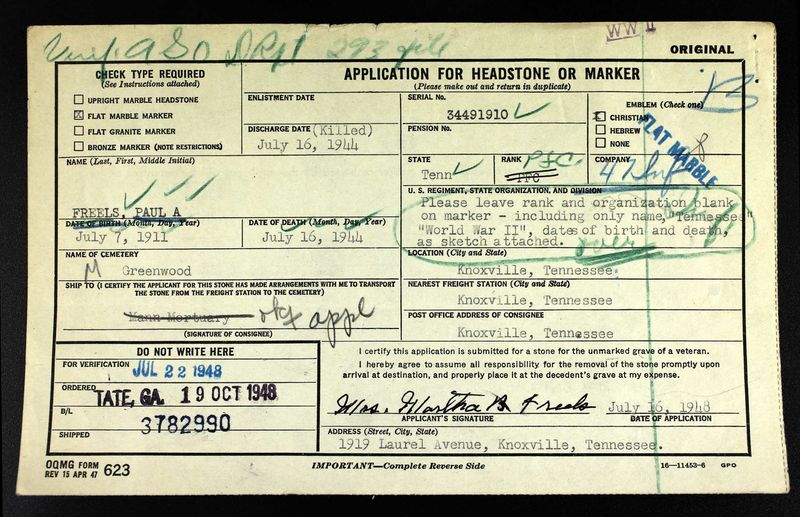 WW II
ORIGINAL
CHECK TYPE REQUIRED
(See Instructions attached)
UPRIGHT MARBLE HEADSTONE
FLAT MARBLE MARKER
FLAT GRANITE MARKER
BRONZE MARKER (NOTE RESTRICTIONS)
APPLICATION FOR HEADSTONE OR MARKER
(Please make out and return in duplicate)
ENLISTMENT DATE
SERIAL No.
34491910
EMBLEM (Check one)
CHRISTIAN
HEBREW
NONE
DISCHARGE DATE (Killed)
July 16, 1944
PENSION No.
FLAT MARBLE
NAME (Last, First, Middle Initial)
FREELS, PAUL A
STATE
Tenn
RANK PFC
PFC
COMPANY
U. S. REGIMENT, STATE ORGANIZATION, AND DIVISION
Please leave rank and organization blank
on marker - including only name, "Tennessee"
"World War II", dates of birth and death,
as sketch attached.
over
DATE OF BIRTH (Month, Day, Year)
July 7, 1911
DATE OF DEATH (Month, Day, Year)
July 16, 1944
NAME OF CEMETERY
M Greenwood
LOCATION (City and State)
Knoxville, Tennessee.
SHIP TO (I CERTIFY THE APPLICANT FOR THIS STONE HAS MADE ARRANGEMENTS WITH ME TO TRANSPORT
THE STONE FROM THE FREIGHT STATION TO THE CEMETERY)
Mann Mortuary
appl
(SIGNATURE OF CONSIGNEE)
NEAREST FREIGHT STATION (City and State)
Knoxville, Tennessee
POST OFFICE ADDRESS OF CONSIGNEE
Knoxville, Tennessee
DO NOT WRITE HERE
FOR VERIFICATION JUL 22 1948
ORDERED TATE, GA. 19 OCT 1948
B/L 3782990
SHIPPED
I certify this application is submitted for a stone for the unmarked grave of a veteran.
I hereby agree to assume all responsibility for the removal of the stone promptly upon
arrival at destination, and properly place it at the decedent's grave at my expense.
Mrs. Martha B Freels July 16, 1948
APPLICANT'S SIGNATURE DATE OF APPLICATION
ADDRESS (Street, City, State)
1919 Laurel Avenue, Knoxville, Tennessee.
OQMG FORM
REV 15 APR 47 623
IMPORTANT—Complete Reverse Side
16—11453-6 GPO